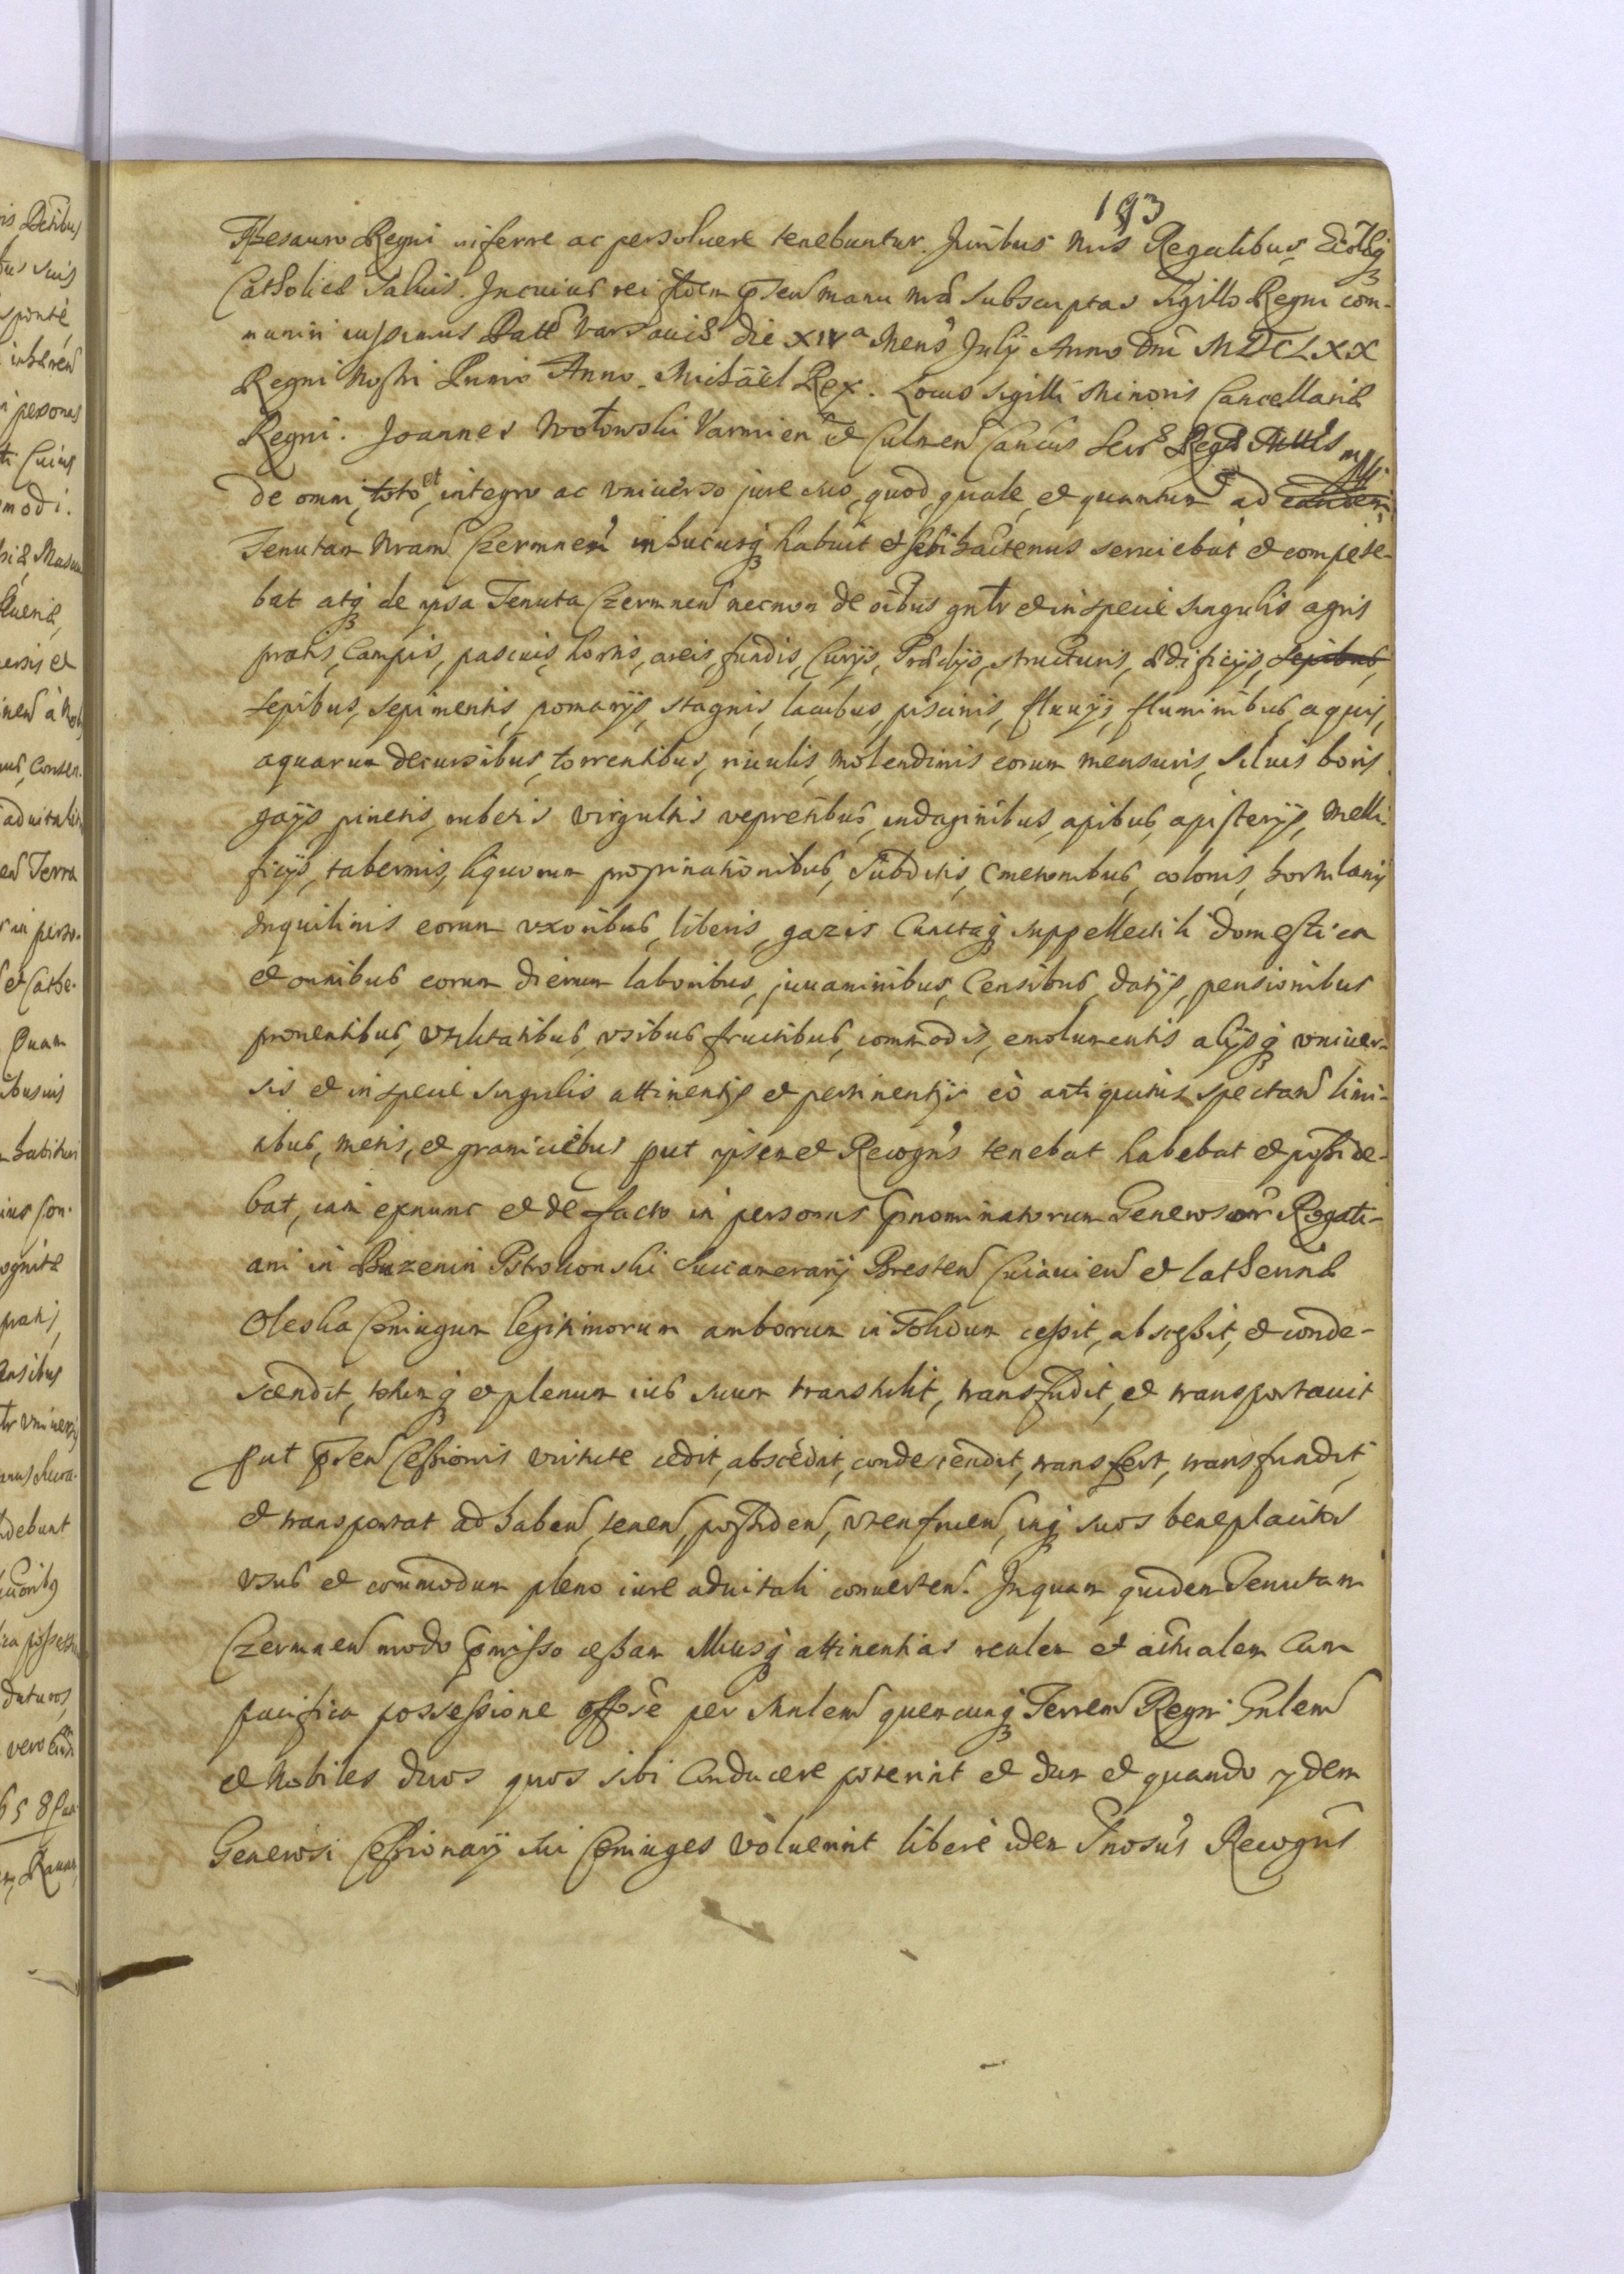 193
Thesauro Regni inferre ac persoluere tenebuntur. Juribus nris Regalibus, Ecclaeq
Catholicae Saluis. Incuius rei fidem pnten manu nra subscriptas sigillo Regni com-
muniri iussimus Datt Varsauiae die XIVa Mens July Anno Dni MDCLXX
Regni Nostri Primo Anno. Michaël Rex. Locus sigilli Minoris Cancellariae
Regni. Joannes Wołowski Varmien et Culmen Cancus Secrs Regae Mttis mpp
de omni, toto, et integro ac vniuerso jure suo, quod, quale, et quantum ad eandem
Tenutam Nram Czermnen inhucusq habuit et sibi hactenus seruiebat et compete-
bat atq de ipsa Tenuta Czermnen necnon de oibus gnlr et in specie singulis agris
pratis, campis, pascuis, hortis, areis, fundis, Curijs, Praedijs, structuris, aedificijs, sepibus,
sepibus, sepimentis, pomarijs, stagnis, lacubus, piscinis, fluuijs, fluminibus, aquis,
aquarum decursibus, torrentibus, riuulis, molendinis eorum mensuris, Siluis boris
gajis pinetis, rubetis virgultis vepretibus, indaginibus, apibus, apisterijs, melli-
ficijs, tabernis, liquorum propinationibus, Subditis, Cmetonibus, colonis, hortulanis
Inquilinis eorum vxoribus, liberis, gazis Cunctaq suppellectili domestica
et omnibus eorum dierum laboribus, juuaminibus, Censibus, datijs, pensionibus
prouentibus, vtilitatibus, vsibus fructibus, commodis, emolumentis alijsq vniuer-
sis et in specie singulis attinentijs et pertinentijs eò antiquitus spectan limi-
tibus, metis, et graniciebus put ipsemet Recogns tenebat habebat et posside-
bat, iam exnunc et de facto in personas pnominatorum Generosorum Rogati-
ani in Buzenin Pstrokonski Succamerarij Bresten Cuiauien et Catherinae
Oleska Coniugum legitimorum amborum in Solidum cessit, abscessit, et conde-
scendit, totumq et plenum ius suum transtulit, transfudit, et transportauit
put pnten Cessionis virtute cedit, abscedit, condescendit, transfert, transfundit,
et transportat ad haben, tenen, possiden, vten fruen, inq suos beneplacitos
vsus et commodum pleno iure aduitali conuerten. In quam quidem Tenutam
Czermnen modo pmisso cessam illiusq attinentias realem et actualem Cum
pacifica possessione per Mnlem quemcunq Terren Regni Gnlem
et Nobiles duos quos sibi conducere poterint et dum et quando ijdem
Generosi Cessionarij sui Coniuges voluerint liberè idem Gnosus Recogns